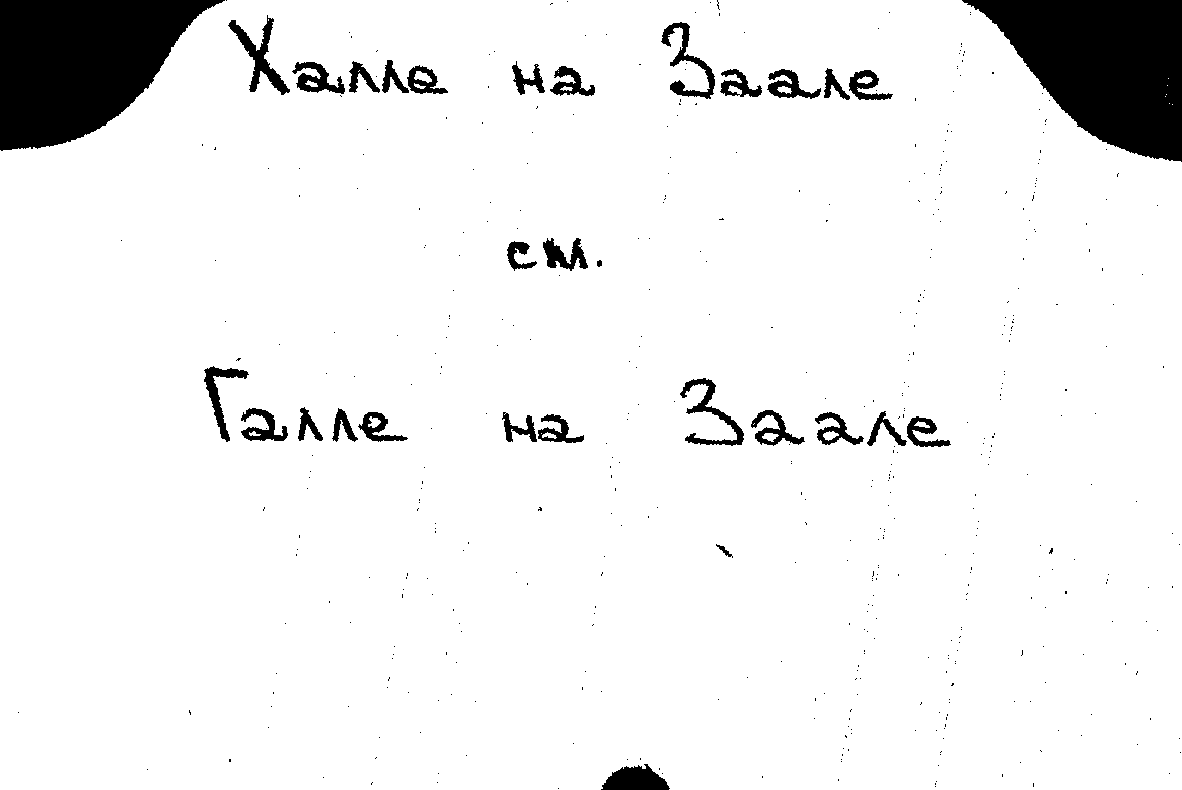 Халле на Заале
см.
Галле на Заале